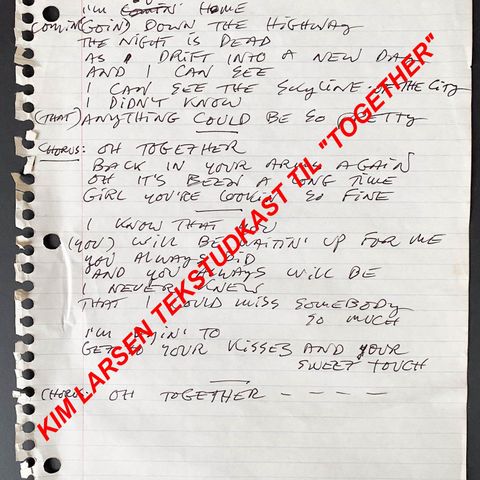 I'm comin' HOME
COMIN' GOIN' DOWN THE HIGHWAY
THE NIGHT IS DEAD
AS I DRIFT INTO A NEW DAY
AND I CAN SEE
I CAN SEE THE SKYLINE OF THE CITY
I DIDN'T KNOW
(THAT) ANYTHING COULD BE SO PRETTY
CHORUS: OH TOGETHER
BACK IN YOUR ARMS AGAIN
OH IT'S BEEN A LONG TIME
GIRL YOU'RE LOOKIN' SO FINE
I KNOW THAT YOU
(YOU) WILL BE WAITIN' UP FOR ME
YOU ALWAYS DID
AND YOU ALWAYS WILL BE
I NEVER KNEW
THAT I COULD MISS SOMEBODY
SO MUCH
I'M DYIN' TO
GET TO YOUR KISSES AND YOUR
SWEET TOUCH
CHORUS: OH TOGETHER - - - -
KIM LARSEN TEKSTUDKAST TIL "TOGETHER"